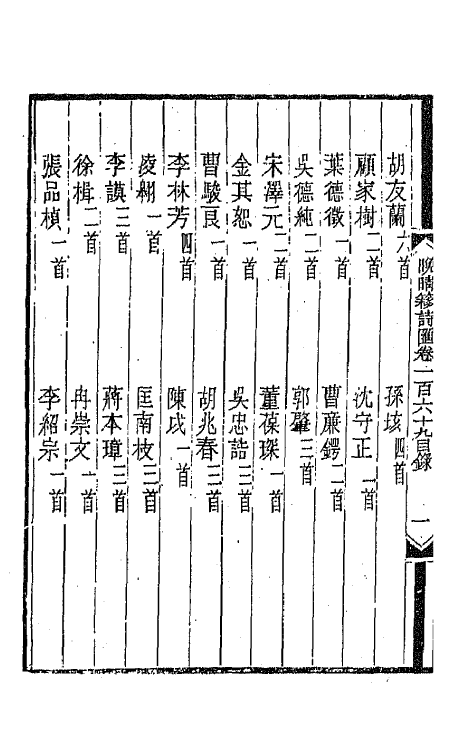 晚晴簃詩匯卷一百六十九目錄 一
胡友蘭六首 孫垓四首
顧家樹二首 沈守正一首
葉德徵一首 曹廉鍔二首
吳德純二首 郭肇三首
宋澤元二首 董葆琛一首
金其恕一首 吳忠誥一首
曹駿良一首 胡兆春三首
李林芳四首 陳戌一首
凌翱一首 匡南枝三首
李謨三首 蔣本璋三首
徐楫二首 冉崇文一首
張品楨一首 李紹宗一首